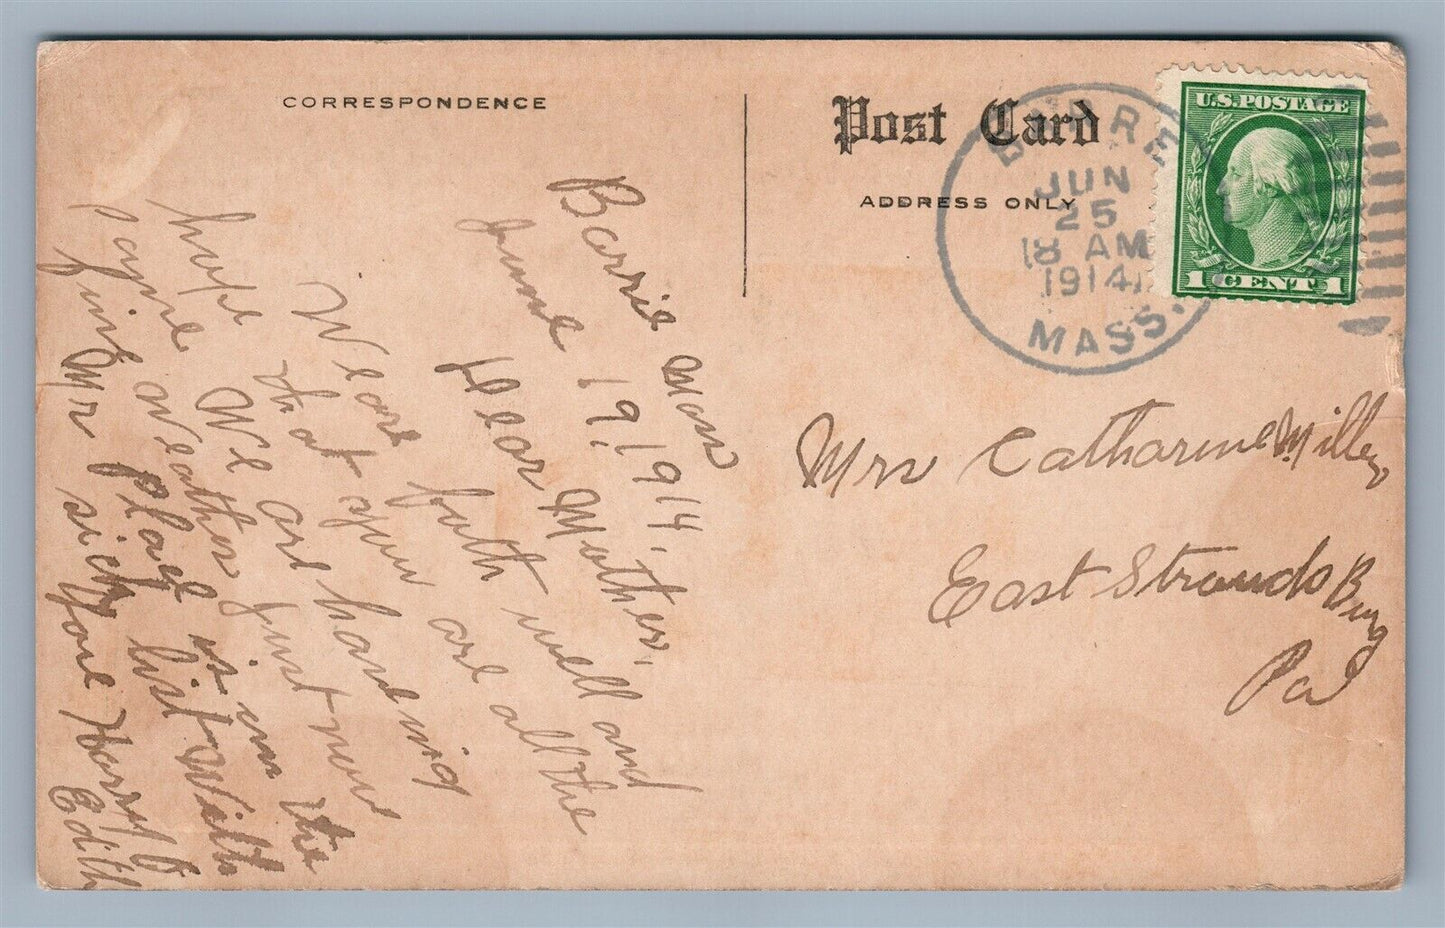 CORRESPONDENCE
Post Card
ADDRESS ONLY
BARRE
JUN
25
8 AM
1914
MASS.
U.S. POSTAGE
1 CENT 1
Barrie Mass
June 19, 1914.
Dear Mother,
Weare both well and
hope that you are all the
same We are having
fine Weather just now
Mr Place is on the
sick list With
Harry &
Edith
Mrs Catharine Miller
East Stroudo Burg
Pa